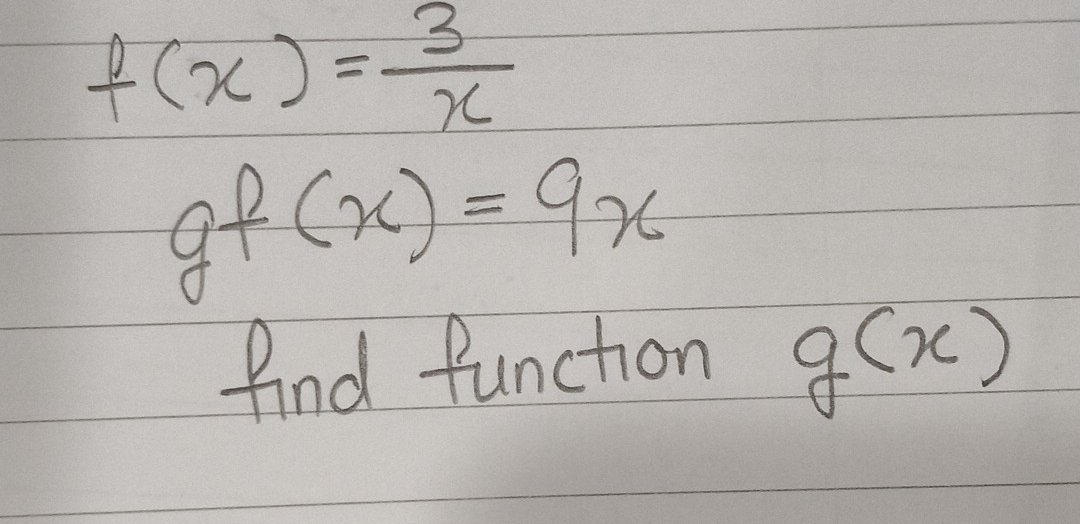 f(x) = 3/x
gf(x) = 9x
find function g(x)